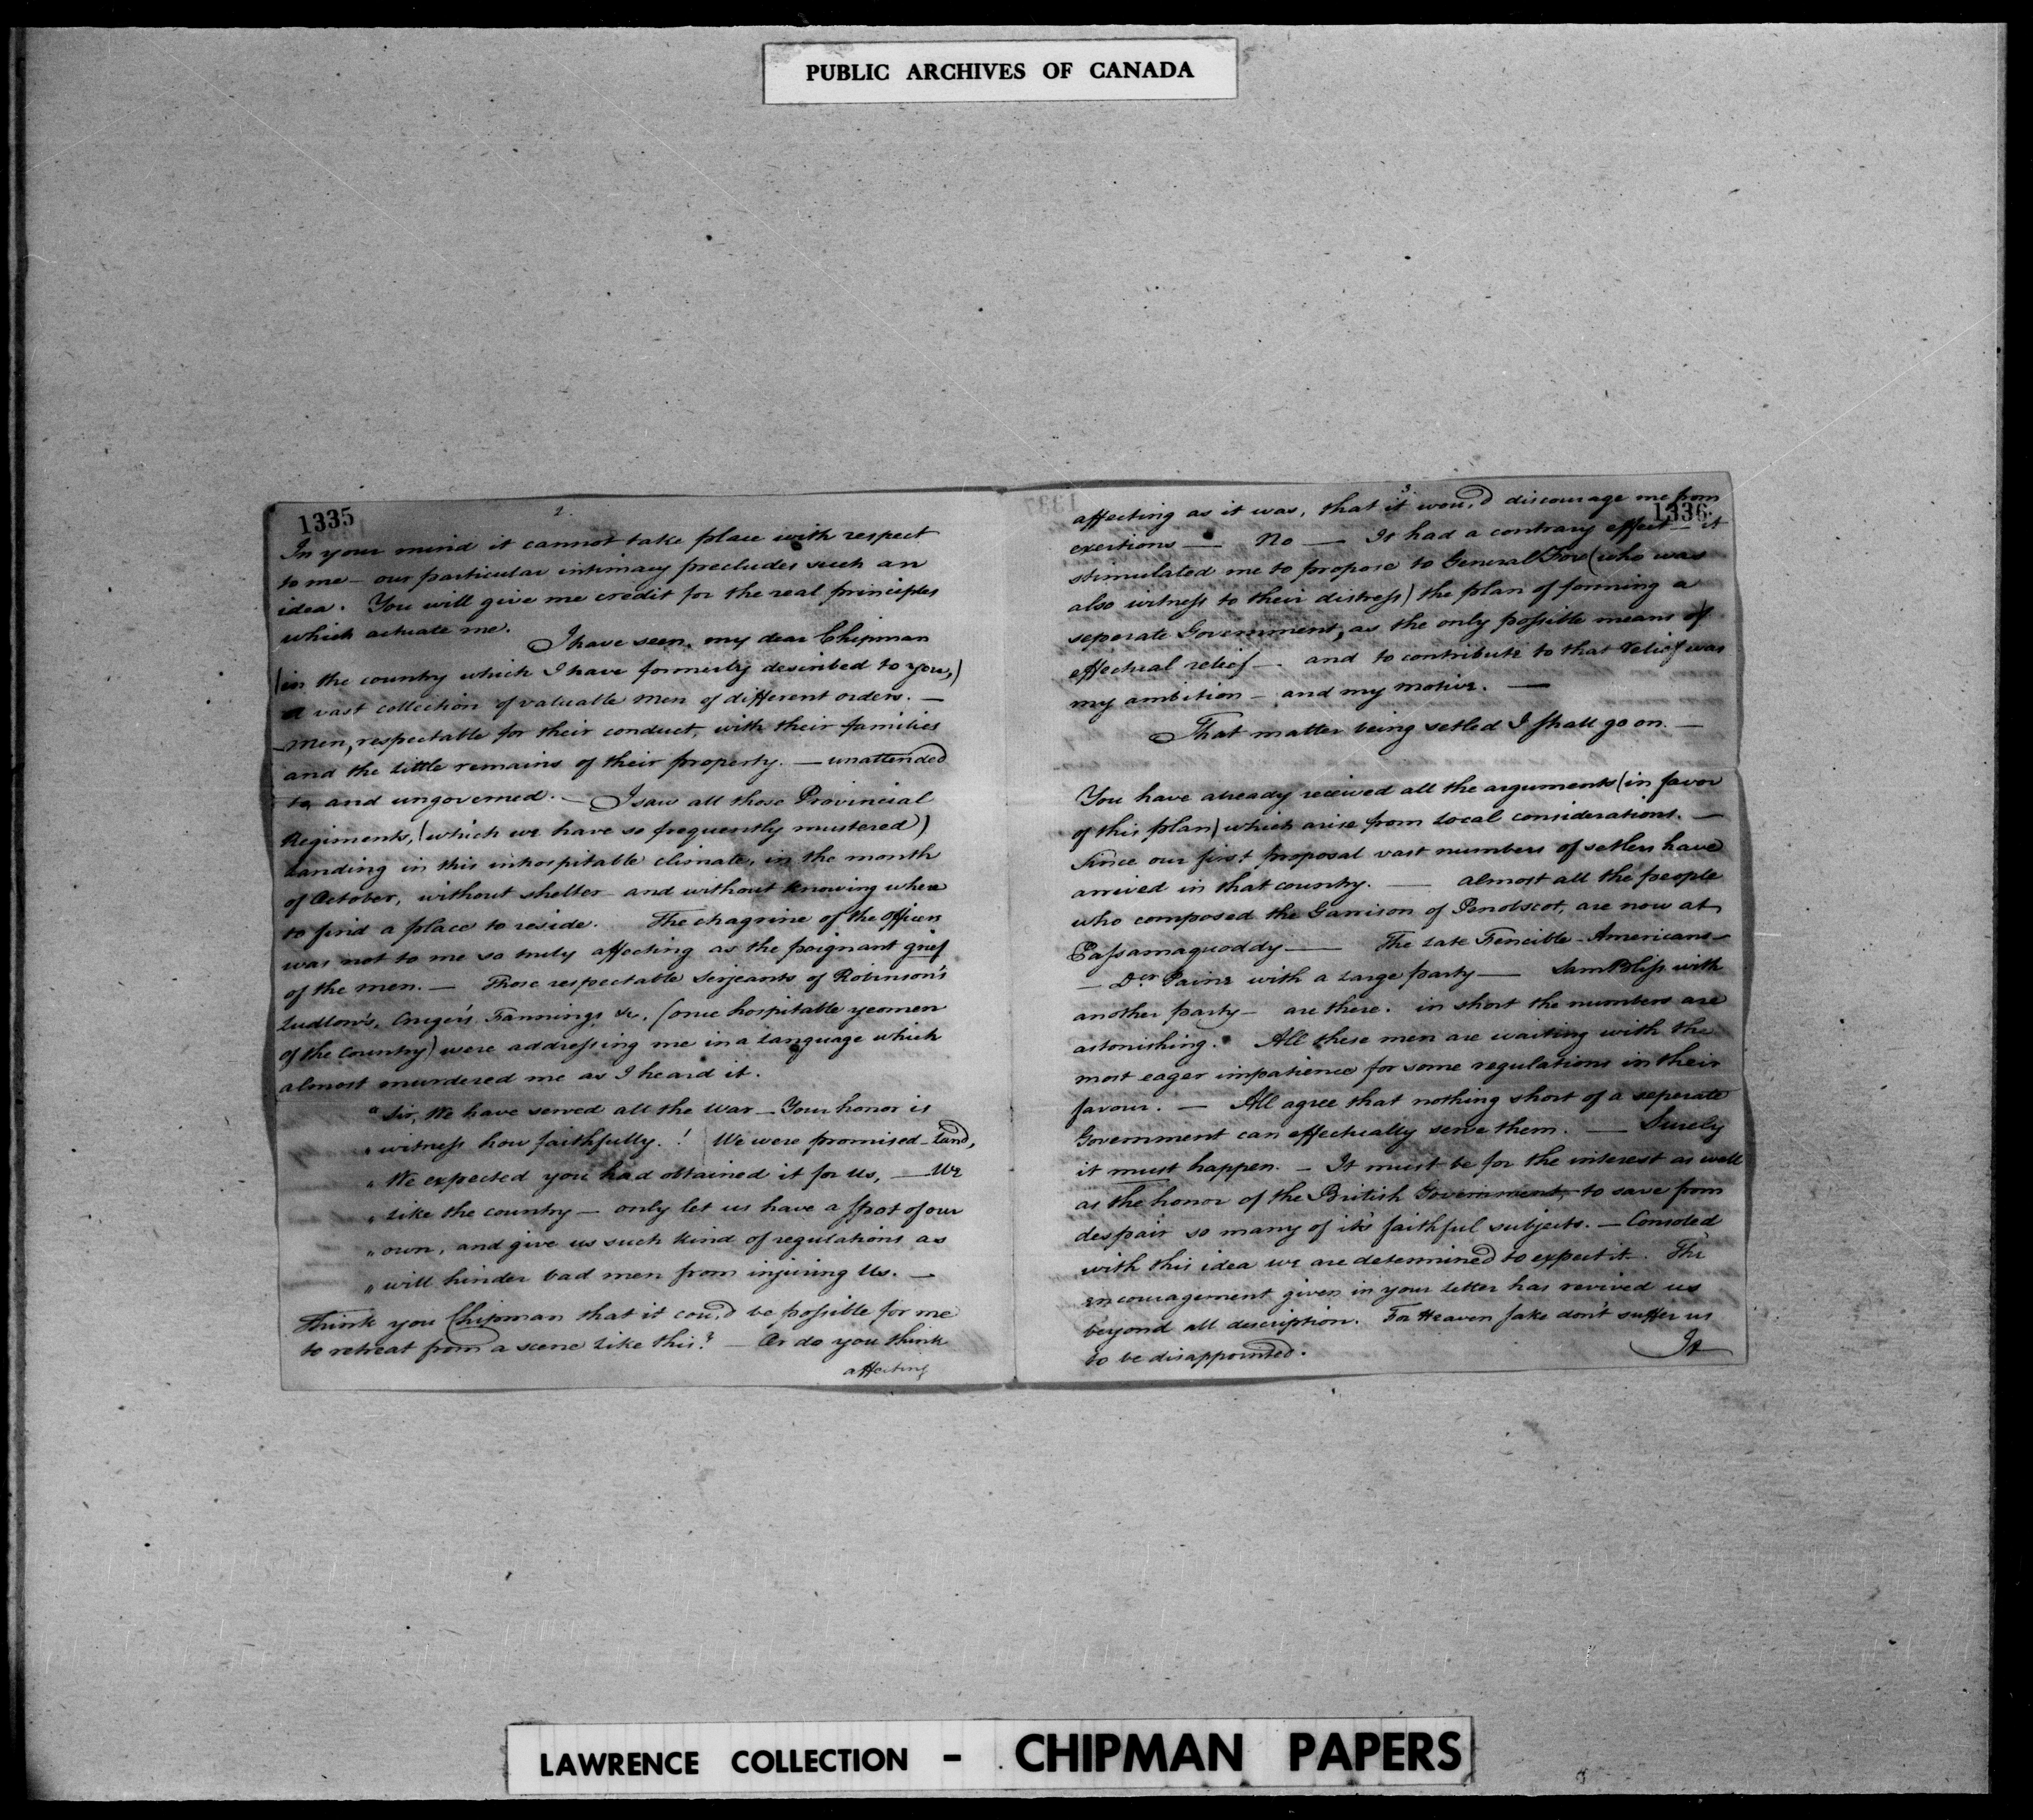 PUBLIC ARCHIVES OF CANADA
1335
2.
In your mind it cannot take place with respect
to me — our particular intimacy precludes such an
idea. You will give me credit for the real principles
which actuate me.
I have seen, my dear Chipman
(in the country which I have formerly described to you,)
a vast collection of valuable men of different orders. —
— men, respectable for their conduct, with their families
and the little remains of their property. — unattended
to, and ungoverned. — I saw all those Provincial
Regiments, (which we have so frequently mustered)
landing in this inhospitable climate, in the month
of October, without shelter and without knowing where
to find a place to reside. The chagrine of the officers
was not to me so truly affecting as the poignant grief
of the men. — Those respectable serjeants of Robinson's
Ludlow's, Cruger's, Fannings, &c. (once hospitable yeomen
of the Country) were addressing me in a language which
almost murdered me as I heard it.
"Sir, We have served all the War — Your honor is
" witness how faithfully.! We were promised land,
" We expected you had obtained it for us, — We
" like the country — only let us have a spot of our
" own, and give us such kind of regulations as
" will hinder bad men from injuring Us. —
Think you Chipman that it cou,d be possible for me
to retreat from a scene like this? — Or do you think
affecting
3.
1336
affecting as it was, that it wou,d discourage me from
exertions — No — It had a contrary effect — it
stimulated me to propose to General Fox (who was
also witness to their distress) the plan of forming a
seperate Government, as the only possible means of
effectual relief — and to contribute to that relief was
my ambition — and my motive. —
That matter being setled I shall go on. —
You have already received all the arguments (in favor
of this plan) which arise from local considerations. —
Since our first proposal vast numbers of setlers have
arrived in that country. — almost all the people
who composed the Garrison of Penobscot, are now at
Passamaquoddy — The late Fencible Americans —
— Dr. Paine with a large party — Sam Bliss with
another party — are there. in short the numbers are
astonishing. All these men are waiting with the
most eager impatience for some regulations in their
favour. — All agree that nothing short of a seperate
Government can effectually serve them. — Surely
it must happen. — It must be for the interest as well
as the honor of the British Government, to save from
despair so many of it's faithful subjects. — Consoled
with this idea we are determined to expect it. The
encouragement given in your letter has revived us
beyond all description. For Heaven sake don't suffer us
to be disappointed.
It
LAWRENCE COLLECTION - CHIPMAN PAPERS